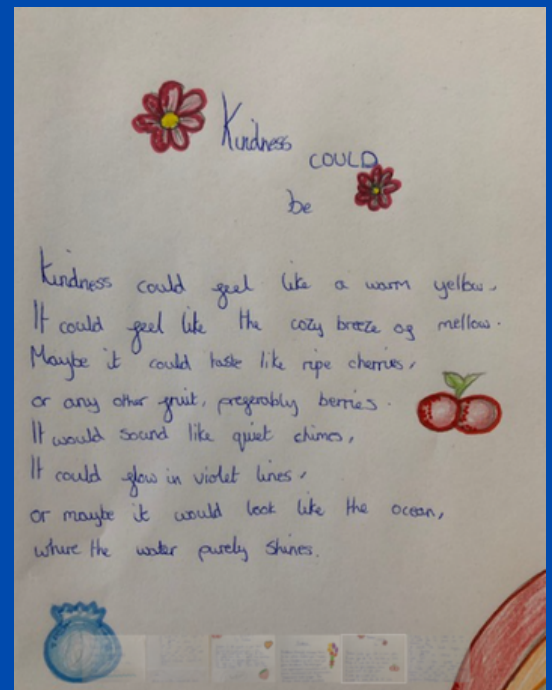 Kindness
COULD
be
Kindness could feel like a warm yellow.
It could feel like the cozy breeze of mellow.
Maybe it could taste like ripe cherries,
or any other fruit, preferably berries.
It would sound like quiet chimes,
It could glow in violet lines,
or maybe it would look like the ocean,
where the water purely shines.